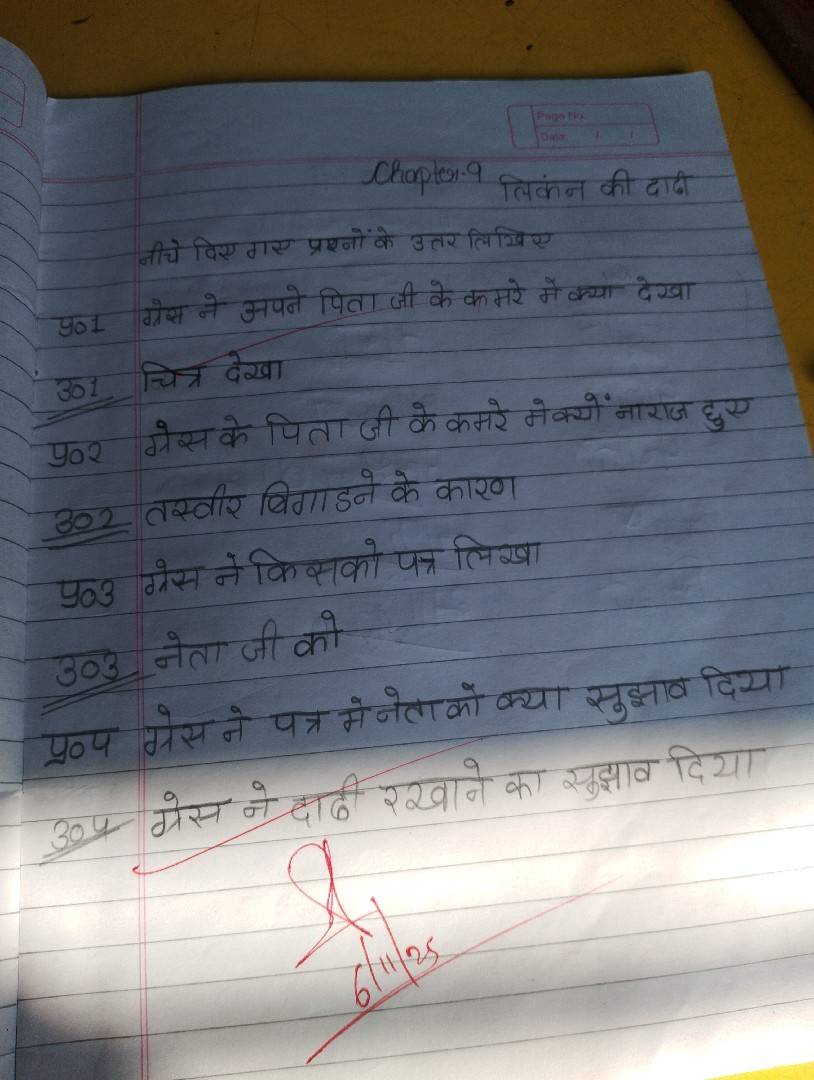 Page No.
Date / /
Chapter-9 लिकंन की दाढी
नीचे दिए गए प्रश्नों के उतर लिखिए
प्र०1 ग्रेस ने अपने पिता जी के कमरे मे क्या देखा
उ०1 चित्र देखा
प्र०२ ग्रेस के पिता जी के कमरे मे क्यों नाराज हुए
उ०२ तस्वीर बिगाडने के कारण
प्र०3 ग्रेस ने किसको पत्र लिखा
उ०3 नेता जी को
प्र०4 ग्रेस ने पत्र मे नेता को क्या सुझाव दिया
उ०4 ग्रेस ने दाढी रखाने का सुझाव दिया
6/11/25